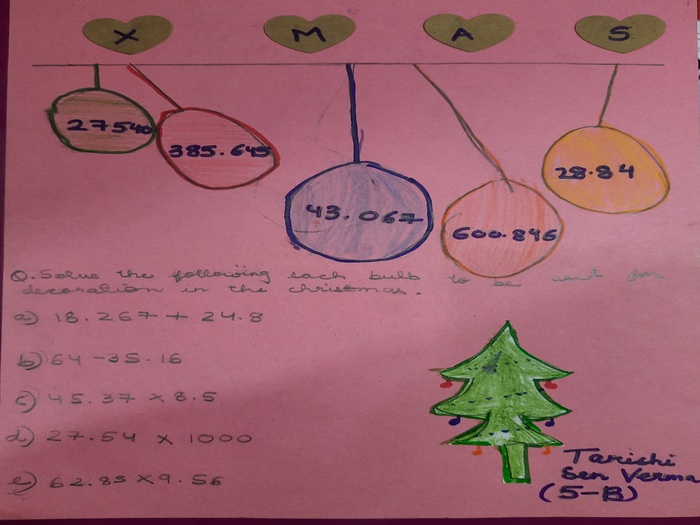 X M A S
27540
385.645
43.067
600.846
28.84
Q. Solve the following each bulb to be used for
decoration in the christmas.
a) 18.267 + 24.8
b) 64 - 35.16
c) 45.37 x 8.5
d) 27.54 x 1000
e) 62.85 x 9.56
Tarishi
Sen Verma
(5-B)